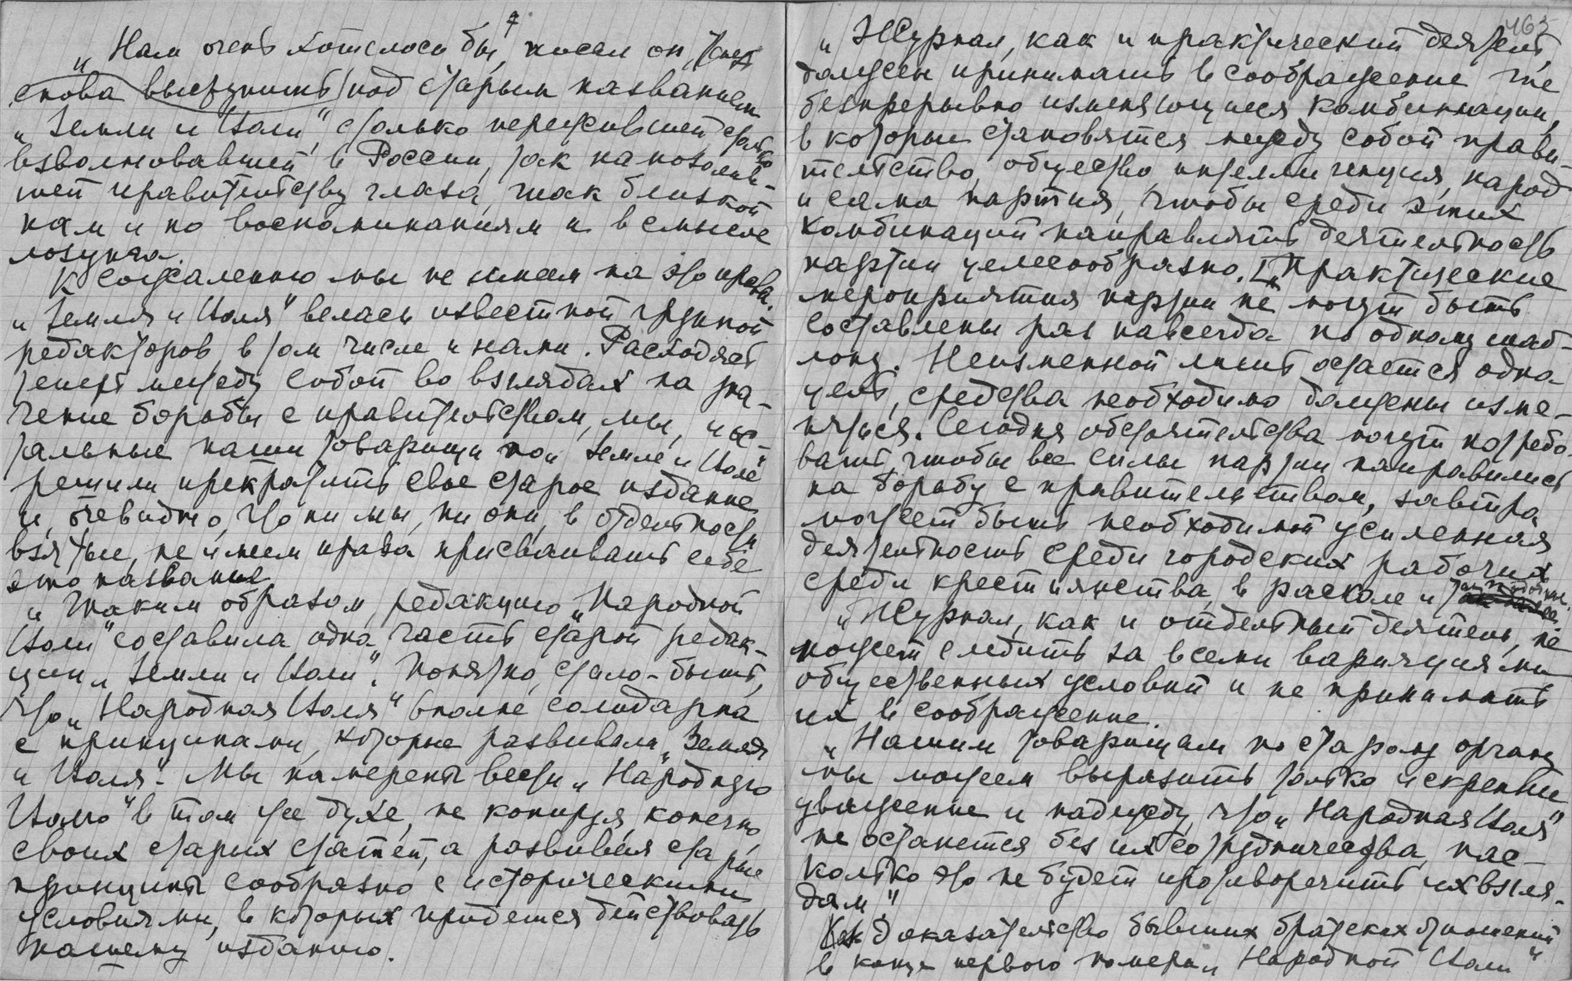 „Нам очень хотелось бы, писал он,
снова выступить под старым названием
„Земли и Воли", столько пережившей, столько
взволновавшей в России, так намозолив-
шей правительству глаза, так близкой
нам и по воспоминаниям и в смысле
лозунга.
К сожалению мы не имеем на это права.
„Земля и Воля" велась известной группой
редакторов, в том числе и нами. Расходясь
теперь между собой во взглядах на зна-
чение борьбы с правительством, мы, и ос-
тальные наши товарищи по „Земле и Воле"
решили прекратить свое старое издание
и, очевидно, что ни мы, ни они, в отдельности
взятые, не имеем права присваивать себе
это название.
„Таким образом, редакцию „Народной
Воли" составила одна часть старой редак-
ции „Земли и Воли". Понятно, стало-быть,
что „Народная Воля" вполне солидарна
с принципами, которые развивала „Земля
и Воля". Мы намерены вести „Народную
Волю" в том же духе, не копируя, конечно,
своих старых статей, а развивая старые
принципы сообразно с историческими
условиями, в которых придется действовать
нашему изданию.
465
„Журнал, как и практический деятель,
должен принимать в соображение те
беспрерывно изменяющиеся комбинации,
в которые становятся между собой прави-
тельство, общество, интеллигенция, народ
и сама партия, чтобы среди этих
комбинаций направлять деятельность
партии целесообразно. Практические
мероприятия партии не могут быть
составлены раз навсегда по одному шаб-
лону. Неизменной лишь остается одна
цель, средства необходимо должны изме-
няться. Сегодня обстоятельства могут потребо-
вать, чтобы все силы партии направились
на борьбу с правительством, завтра
может быть необходимой усиленная
деятельность среди городских рабочих,
среди крестьянства, в расколе и
„Журнал, как и отдельный деятель, не
может следить за всеми вариациями
общественных условий и не принимать
их в соображение.
„Нашим товарищам по старому органу
мы можем выразить только искреннее
уважение и надежду, что „Народная Воля"
не останется без их сотрудничества, нас-
колько это не будет противоречить их взгля-
дам"
Как доказательство бывших братских отношений
в конце первого номера „Народной Воли"